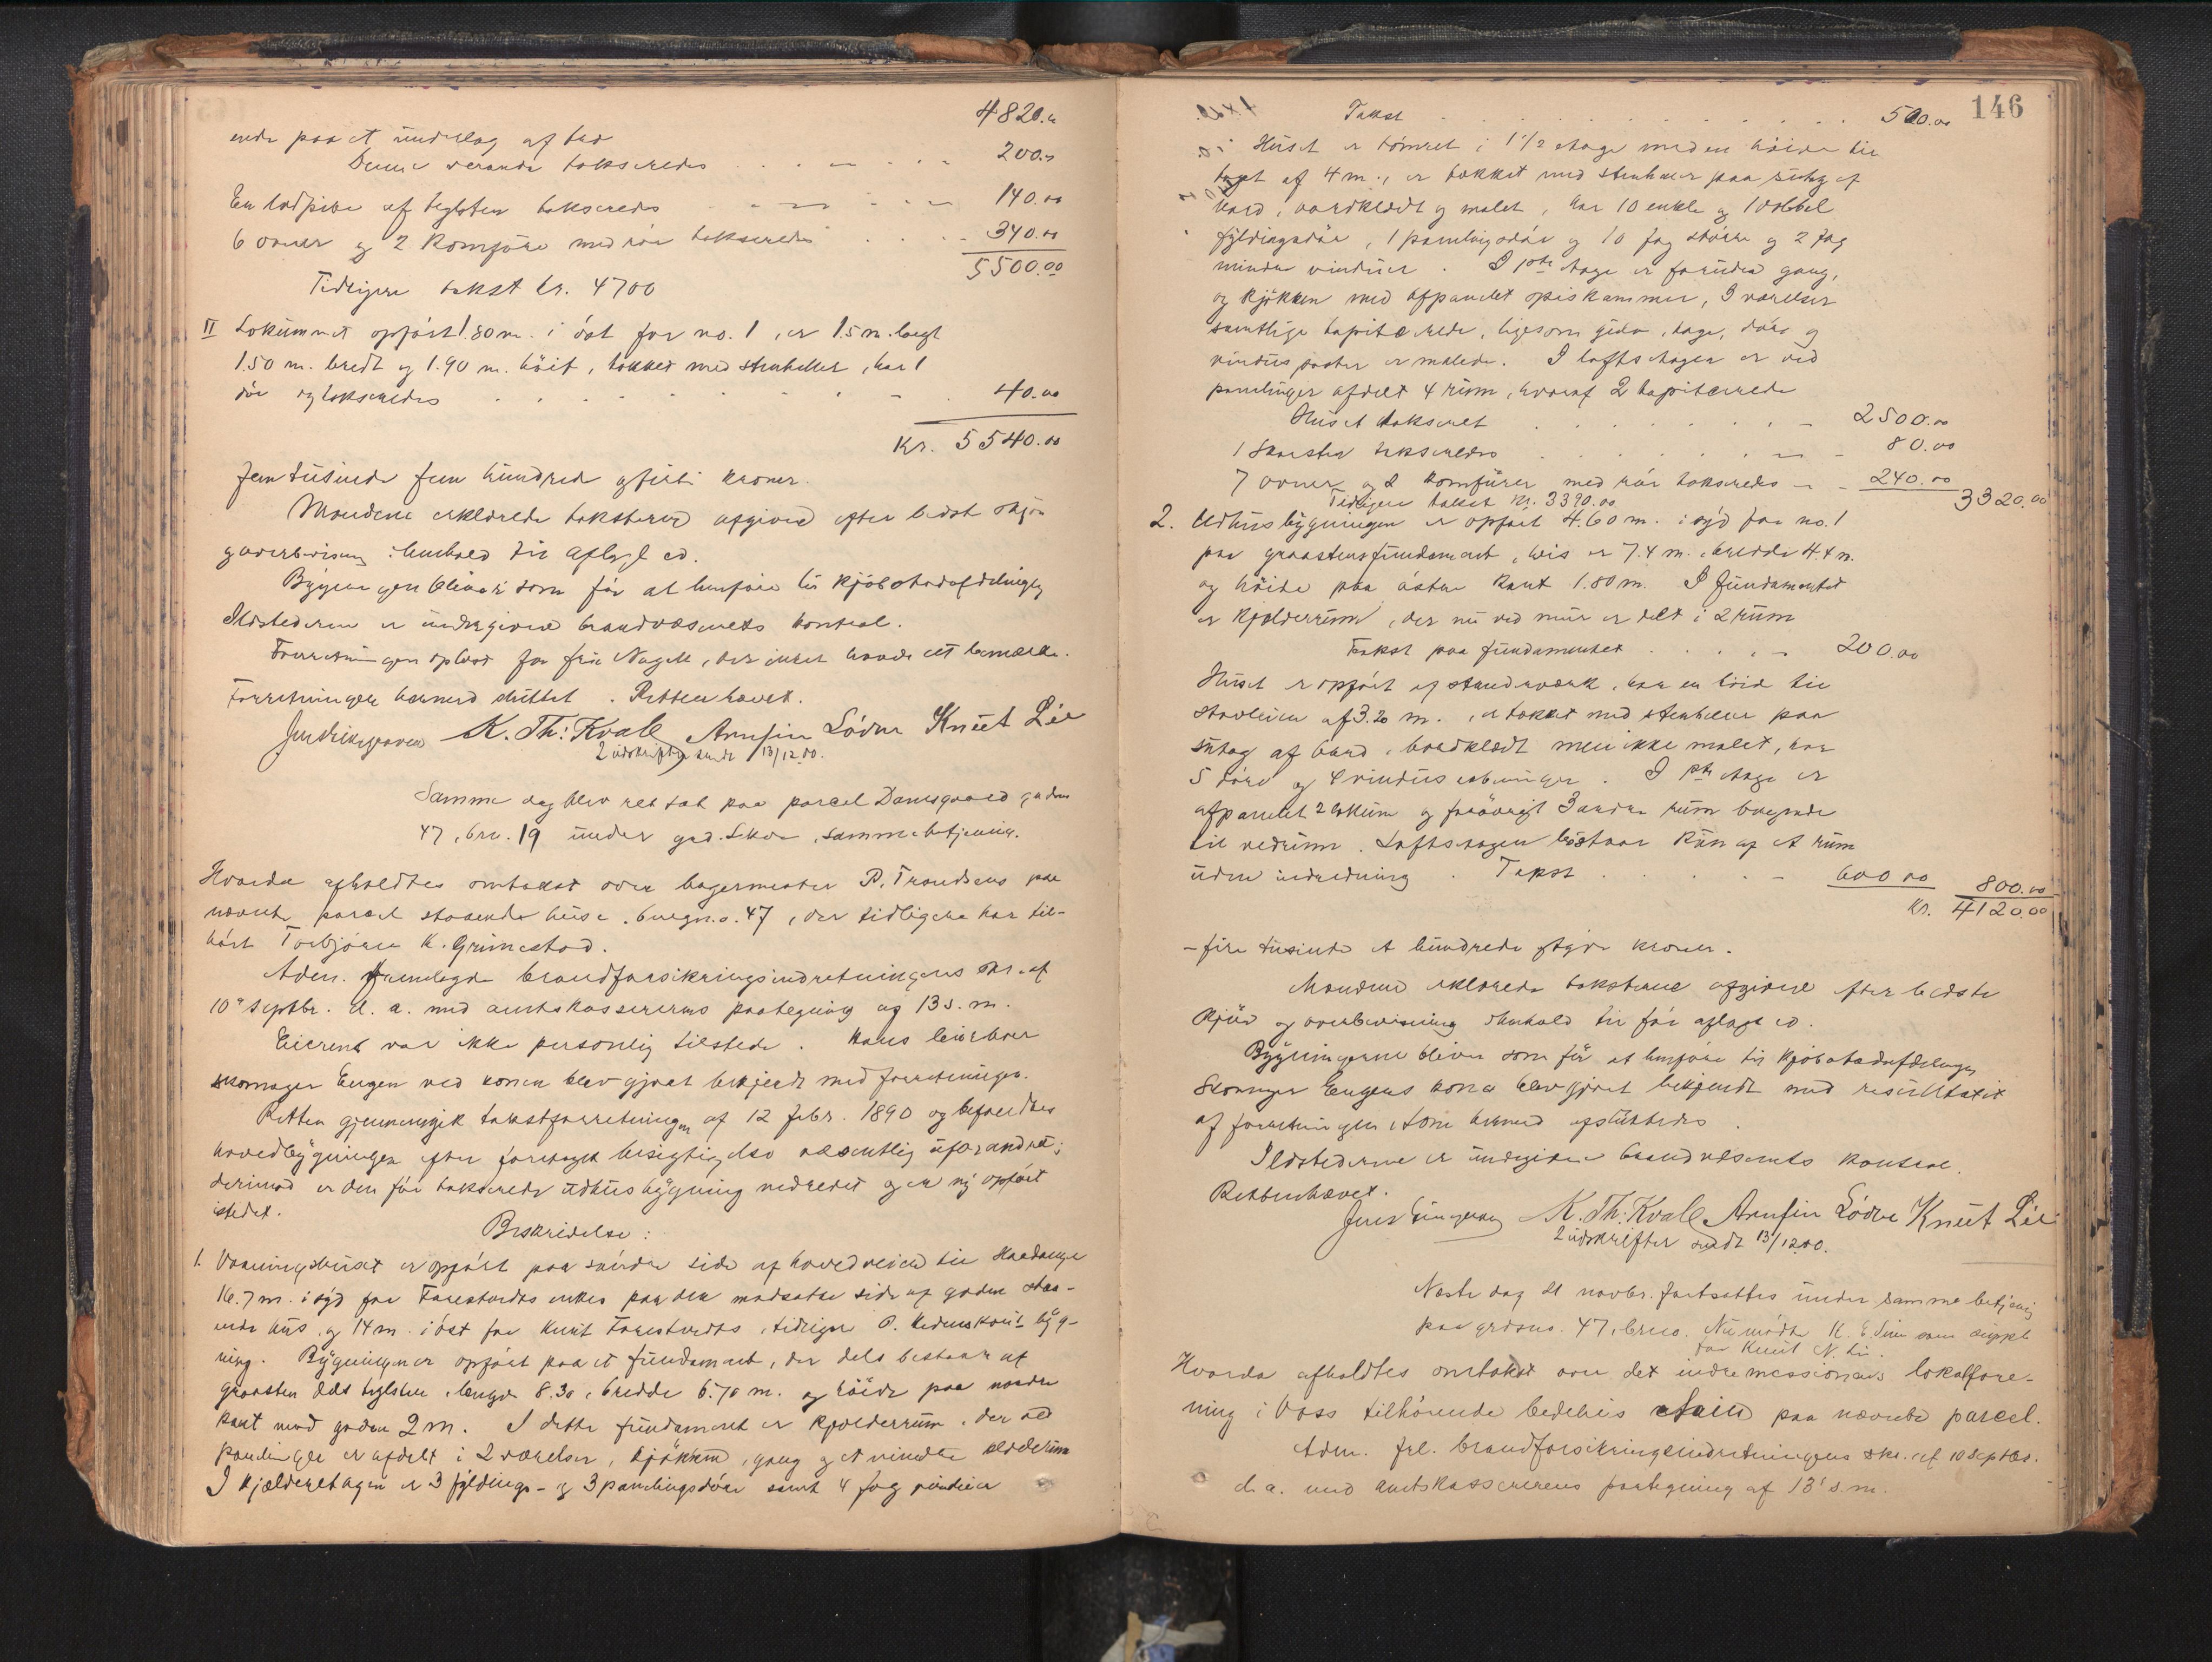 4820.00
ende paa et underlag af
Denne veranda takseredes 200.00
En pibe af teglsten takseredes 140.00
6 ovner og 2 komføre med rør takseredes 340.00
5500.00
Tidligere takst kr. 4700
II Lokummet opført 1.80 m. i øst for no. 1, er 1.5 m. langt
1.50 m. bredt og 1.90 m. høit, tækket med stenheller, har 1
dør og takseredes 40.00
Kr. 5540.00
fem tusinde fem hundrede og firti kroner.
Mændene erklærede taksterne afgivne efter bedste skjøn
og overbevisning i henhold til aflagt ed.
Bygningen bliver som før at henføre til kjøbstadafdelingen
Ildstederne er undergivne brandvæsenets kontrol.
Forretningen oplæst for fru Nagell, der intet havde at bemærke.
Forretningen hermed sluttet. Retten hævet.
K. Th: Kvale Arnfin Lødve Knut Lie
2 udskrifter sendt 13/12.00.
Samme dag blev ret sat paa parcel Damsgaard gaards no.
47, brn. 19 under gaard Lekve, samme betjening.
Hvorda afholdtes omtakst over bagermester P. Trondsens paa
nævnte parcel staaende huse, brugn.o. 47, der tidligere har til-
hørt Torbjørn K. Grimestad.
Adm. fremlagde brandforsikringsindretningens skr. af
10de septbr. d. a. med amtskassererens paategning af 13 s. m.
Eieren var ikke personlig tilstede. Hans leieboer
skomager Eugen ved konen blev gjort bekjendt med forretningen.
Retten gjennemgik takstforretningen af 12 febr. 1890 og befandtes
hovedbygningen efter foretaget besigtigelse væsentlig uforandret;
derimod er den før takserede udhusbygning nedrevet og en ny opført
istedet.
Beskrivelse:
1. Vaaningshuset er opført paa søndre side af hovedveien til Hardanger
16.7 m. i syd for enkes paa den modsatte side af gaden staa-
ende hus, og 14 m. i øst for Knut tidligere O. byg-
ning. Bygningen er opført paa et fundament, der dels bestaar af
graasten dels teglsten, længde 8.30, bredde 6.70 m. og høide paa nordre
kant mod gaden 2 m. I dette fundament er kjælderrum, der ved
panelinger er afdelt i 2 værelser, kjøkken, gang og et mindre
I kjælderetagen er 3 fyldings- og 3 panelingsdøre samt 4 fag vinduer
146
Takst 500.00
Huset er tømret i 1 1/2 etage med en høide til
taget af 4 m., er tækket med stenheller paa sutag af
bord, bordklædt og malet, har 10 enkle og 1 dobbel
fyldingsdør, 1 panelingsdør og 10 fag større og 2 fag
mindre vinduer. I 1ste etage er foruden gang,
og kjøkken med afpanelet spiskammer, 3 værelser
samtlige tapitserede, ligesom gulve, tage, døre og
vindusposter er malede. I loftsetagen er ved
panelinger afdelt 4 rum, hvoraf 2 tapitserede
Huset takseret 2500.00
1 skorsten takseredes 80.00
7 ovner og 2 komfurer med rør takseredes 240.00
3320.00
Tidligere takst kr. 3390.00
2. Udhusbygningen er opført 4.60 m. i syd for no. 1
paa graastensfundament, hvis er 7.4 m. bredde 4.4 m.
og høide paa østre kant 1.80 m. I fundamentet
er kjælderrum, der nu ved mur er delt i 2 rum
Takst paa fundamentet 200.00
Huset er opført af stenderværk, har en høide til
af 3.20 m., er tækket med stenheller paa
sutag af bord, bordklædt men ikke malet, har
5 døre og 4 vindusaabninger. I 1ste etage er
afpanelet 2 lokum og forøvrigt 3 andre rum
til vedrum. Loftsetagen bestaar kun af et rum
uden indredning. Takst 600.00 800.00
Kr. 4120.00
- fire tusinde et hundrede og tyve kroner.
Mændene erklærede taksterne afgivne efter bedste
skjøn og overbevisning i henhold til før aflagt ed.
Bygningerne bliver som før at henføre til kjøbstadafdelingen
Skomager Eugens kone blev gjort bekjendt med resultatet
af forretningen, som hermed afsluttedes.
Ildstederne er undergivne brandvæsenets kontrol.
Retten hævet.
K. Th: Kvale Arnfin Lødve Knut Lie
2 udskrifter sendt 13/12.00.
Næste dag 21 novbr. fortsattes under samme betjening
paa grdsno. 47, brno. Nu mødte K. E. som suppl.
for Knut N. Lie.
Hvorda afholdtes omtakst over det indremissionens lokalfore-
ning i Voss tilhørende bedehus paa nævnte parcel.
Adm. frl. brandforsikringsindretningens skr. af 10 septbr.
d. a. med amtskassererens paategning af 13' s. m.